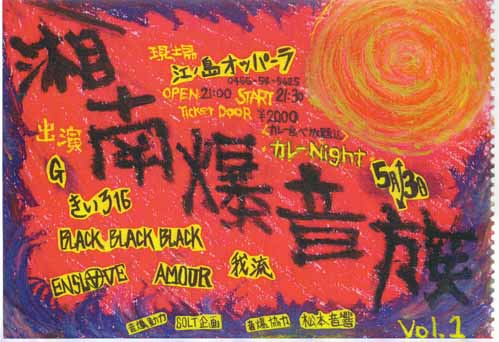 湘南爆音族
現場
江ノ島オッパーラ
OPEN 21:00 START 21:30
TICKET DOOR ¥2000
カレー食べ放題込
カレーNight
5月3日
出演
G
きいろ316
BLACK BLACK BLACK
ENSLAVE
AMOUR
我流
音源動力
SOLT企画
音場協力
松本音響
Vol.1